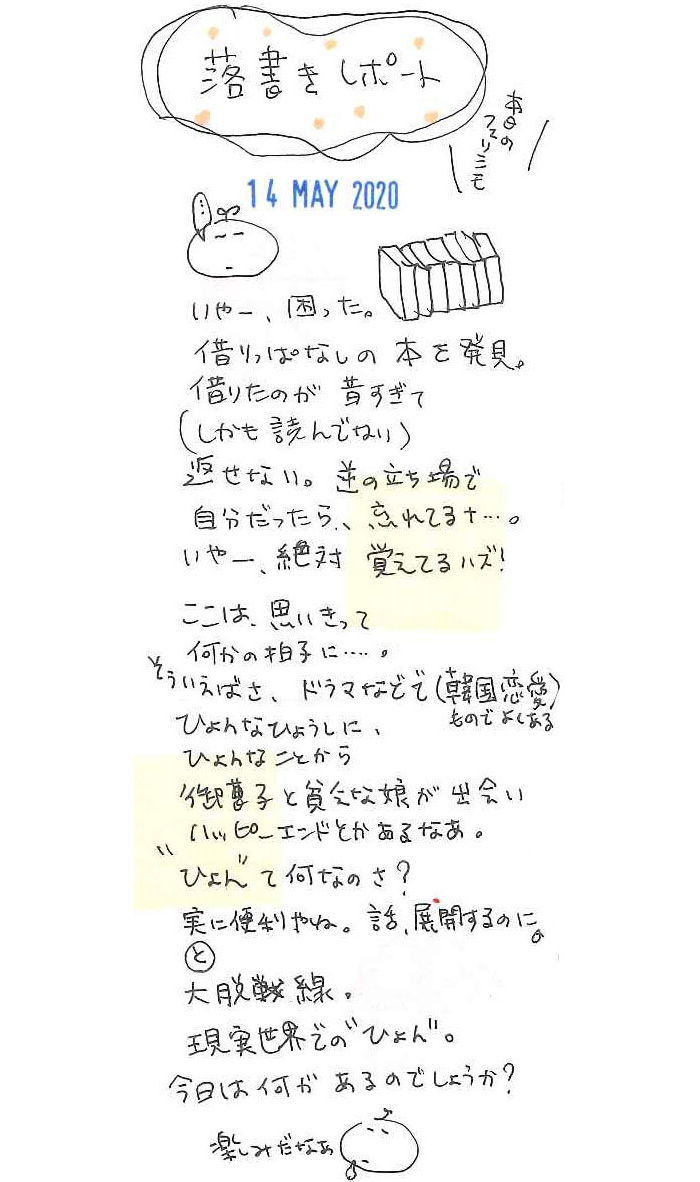 落書きレポート
本日の
フスリミモ
14 MAY 2020
いやー、困った。
借りっぱなしの 本を発見。
借りたのが 昔すぎて
(しかも読んでない)
返せない。逆の立ち場で
自分だったら、忘れてるナ…。
いやー、絶対 覚えてるハズ!
ここは、思いきって
何かの拍子に……。
そういえばさ、ドラマなどで(韓国恋愛)
ものでよくある
ひょんなひょうしに、
ひょんなことから
御曹子と貧乏な娘が出会い
ハッピーエンドとかあるなあ。
"ひょん"て何なのさ?
実に便利やね。話、展開するのに。
と
大脱線。
現実世界での"ひょん"。
今日は何があるのでしょうか?
楽しみだなぁ